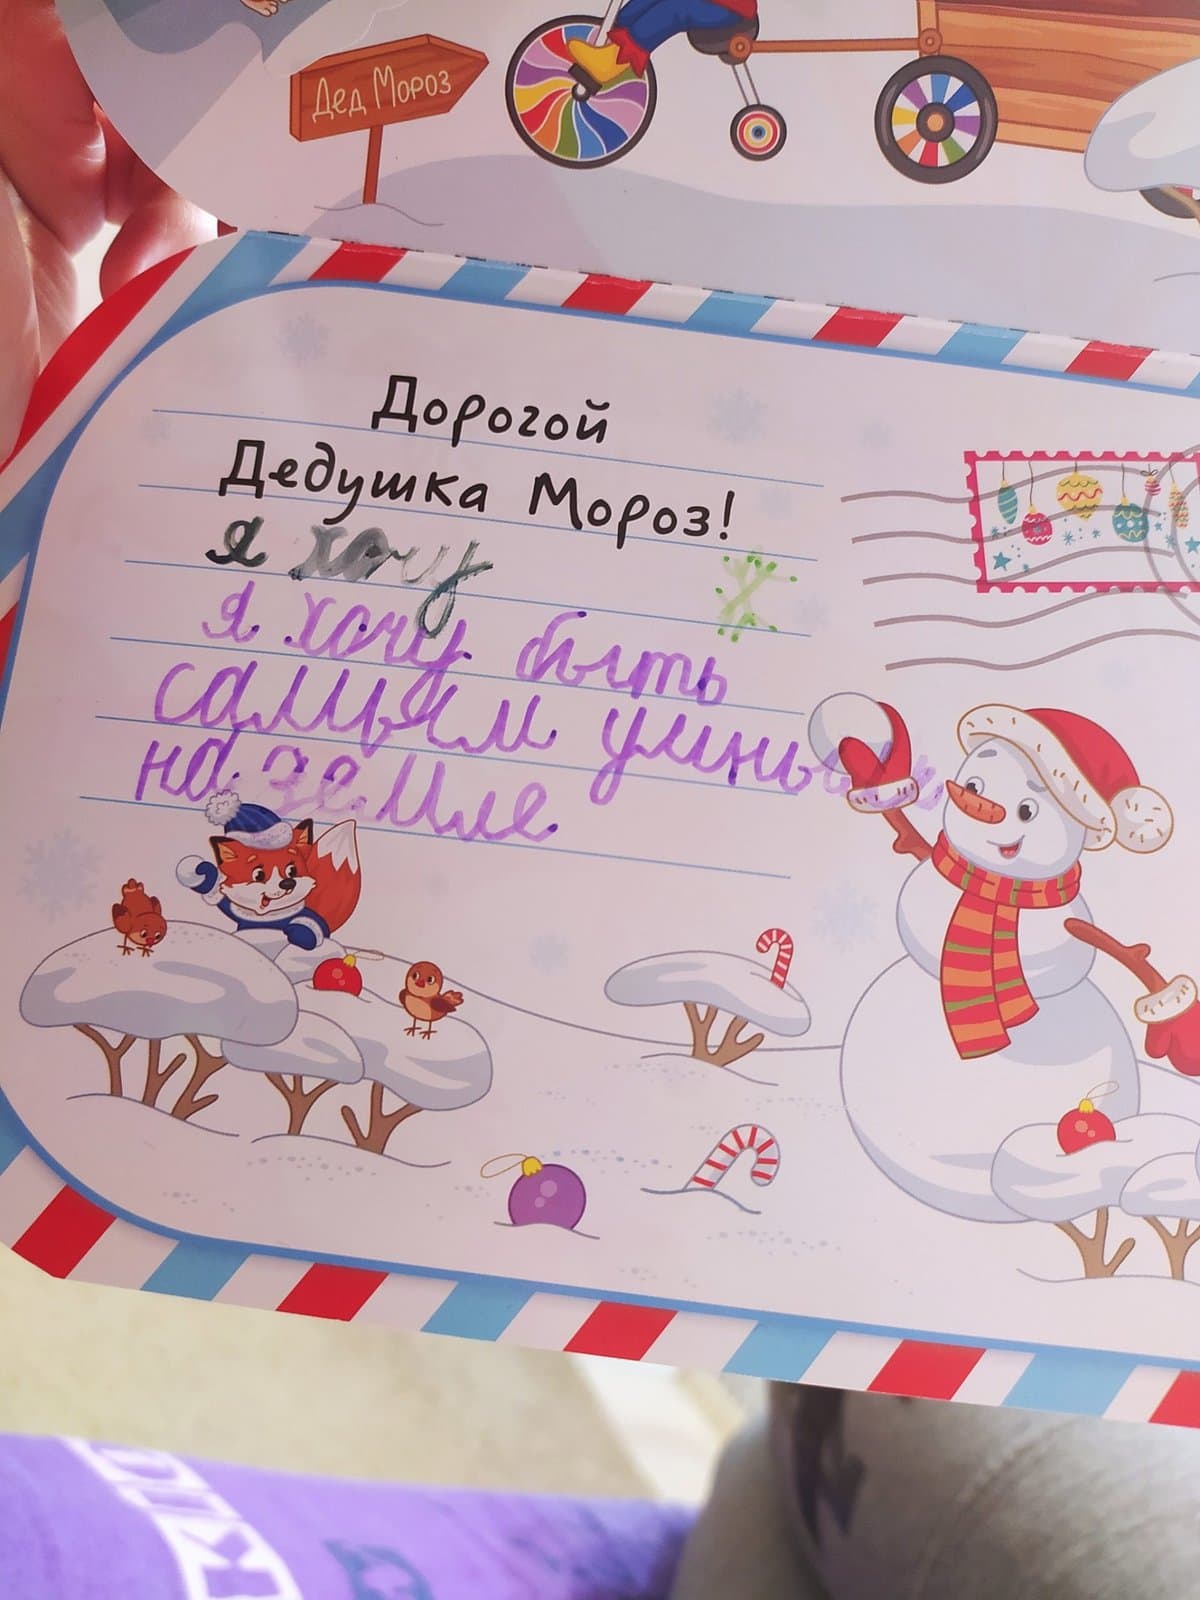 Дед Мороз
Дорогой
Дедушка Мороз!
я хочу
я хочу быть
самым умным
на земле